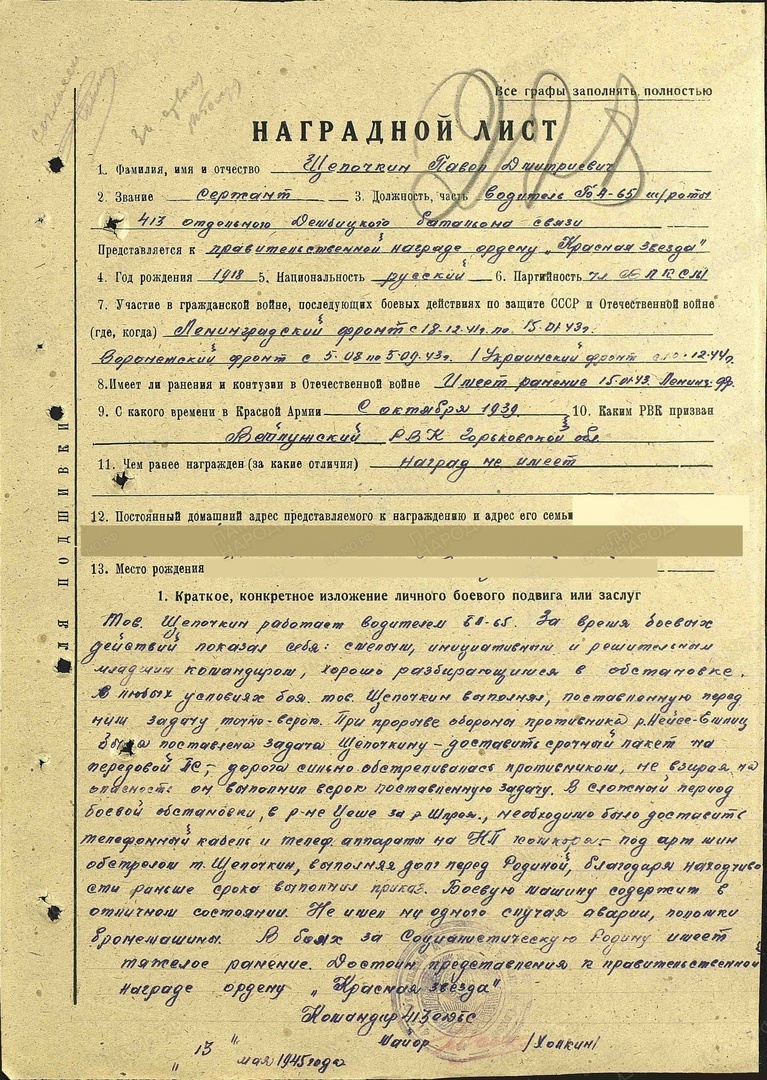 согласен
228
Все графы заполнять полностью
НАГРАДНОЙ ЛИСТ
1. Фамилия, имя и отчество Щепочкин Павел Дмитриевич
2. Звание Сержант 3. Должность, часть водитель БА-65 ш/роты
413 отдельного Дембицкого батальона связи
Представляется к правительственной награде ордену „Красная звезда"
4. Год рождения 1918 5. Национальность русский 6. Партийность чл ВЛКСМ
7. Участие в гражданской войне, последующих боевых действиях по защите СССР и Отечественной войне
(где, когда) Ленинградский фронт с 18-12-41г. по 15.01.43г.
Воронежский фронт с 5-08 по 5-09-43г. 1 Украинский фронт 12-44г.
8. Имеет ли ранения и контузии в Отечественной войне Имеет ранение 15.01.43. Ленинг. фр.
9. С какого времени в Красной Армии С октября 1939 10. Каким РВК призван
РВК Горьковской обл.
11. Чем ранее награжден (за какие отличия) наград не имеет
12. Постоянный домашний адрес представляемого к награждению и адрес его семьи
13. Место рождения
ДЛЯ ПОДШИВКИ
1. Краткое, конкретное изложение личного боевого подвига или заслуг
Тов. Щепочкин работает водителем БА-65. За время боевых
действий показал себя: смелым, инициативным и решительным
младшим командиром, хорошо разбирающимся в обстановке.
В любых условиях боя тов. Щепочкин выполнял, поставленную перед
ним задачу точно-в срок. При прорыве обороны противника р. Нейсе-
была поставлена задача Щепочкину - доставить срочный пакет на
передовой ПС, - дорога сильно обстреливалась противником, не взирая на
опасность он выполнил в срок поставленную задачу. В сложный период
боевой обстановки, в р-не Цеше за р Шпрее, необходимо было доставить
телефонный кабель и телеф. аппараты на НП комкора - под арт мин
обстрелом т. Щепочкин, выполняя долг перед Родиной, благодаря находчиво
сти раньше срока выполнил приказ. Боевую машину содержит в
отличном состоянии. Не имел ни одного случая аварии, поломки
бронемашины. В боях за Социалистическую Родину имеет
тяжелое ранение. Достоин представления к правительственной
награде ордену „Красная звезда"
Командир 413 одбс
Майор /Холкин/
„13" мая 1945 года